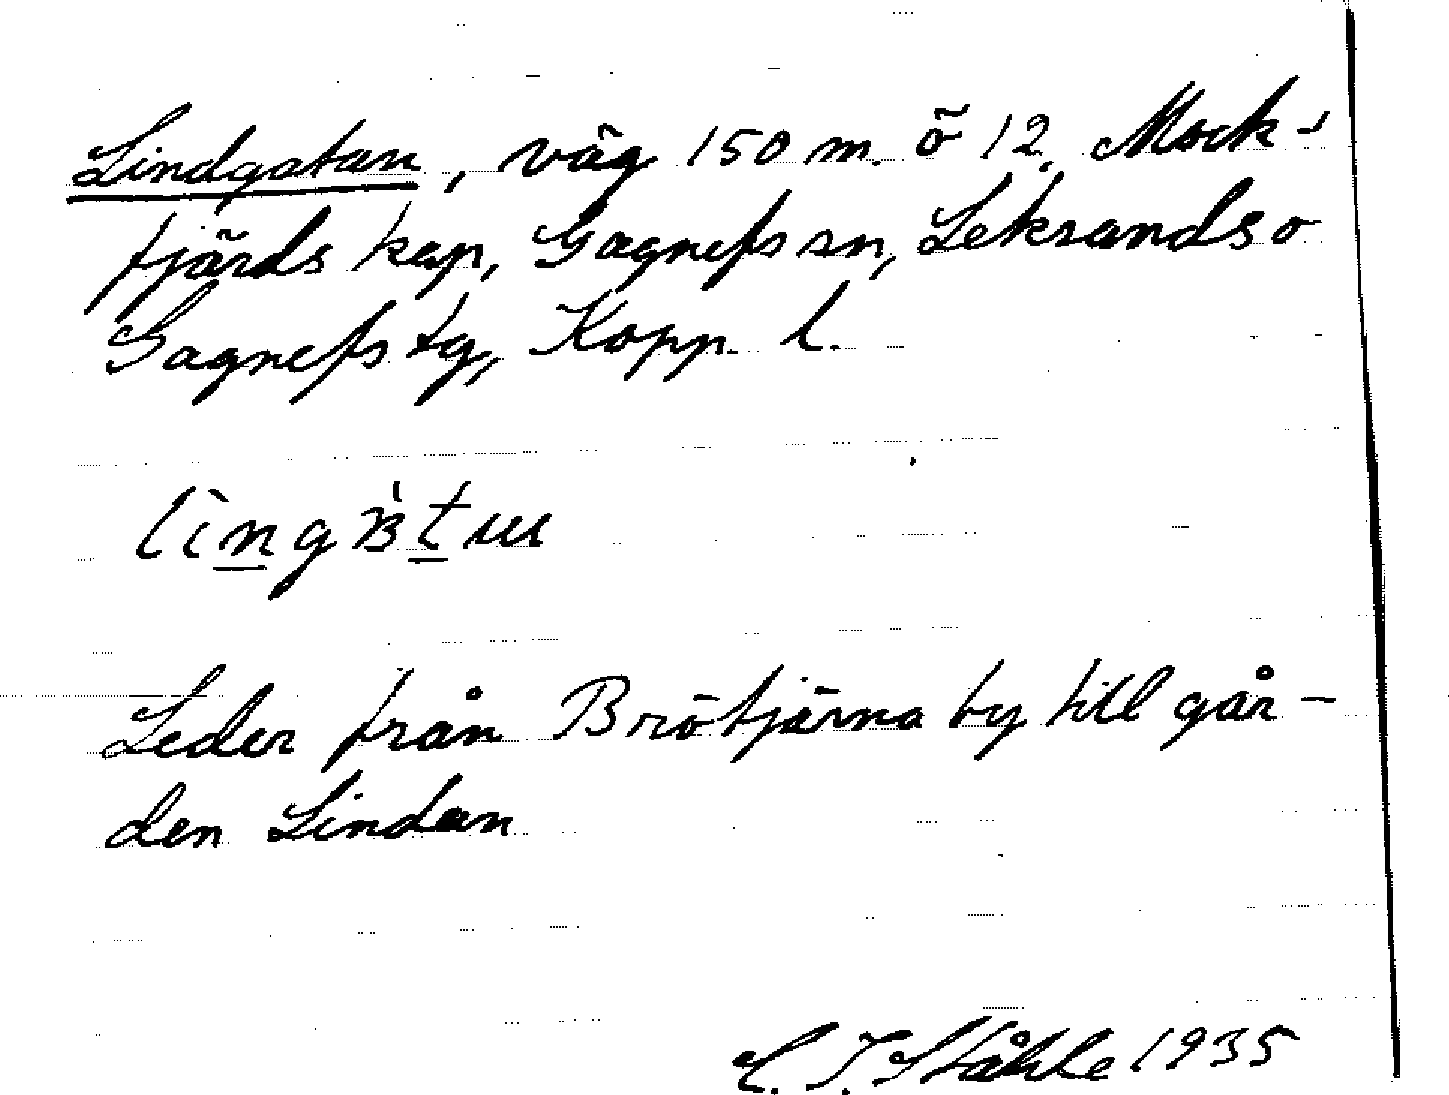 Lindgatan, väg 150 m. ö 12, Mock-
fjärds kap, Gagnefs sn, Leksands o
Gagnefs tg, Kopp. l.
Leder från Brötjärna by till går-
den Lindan
C. I. Ståhle 1935